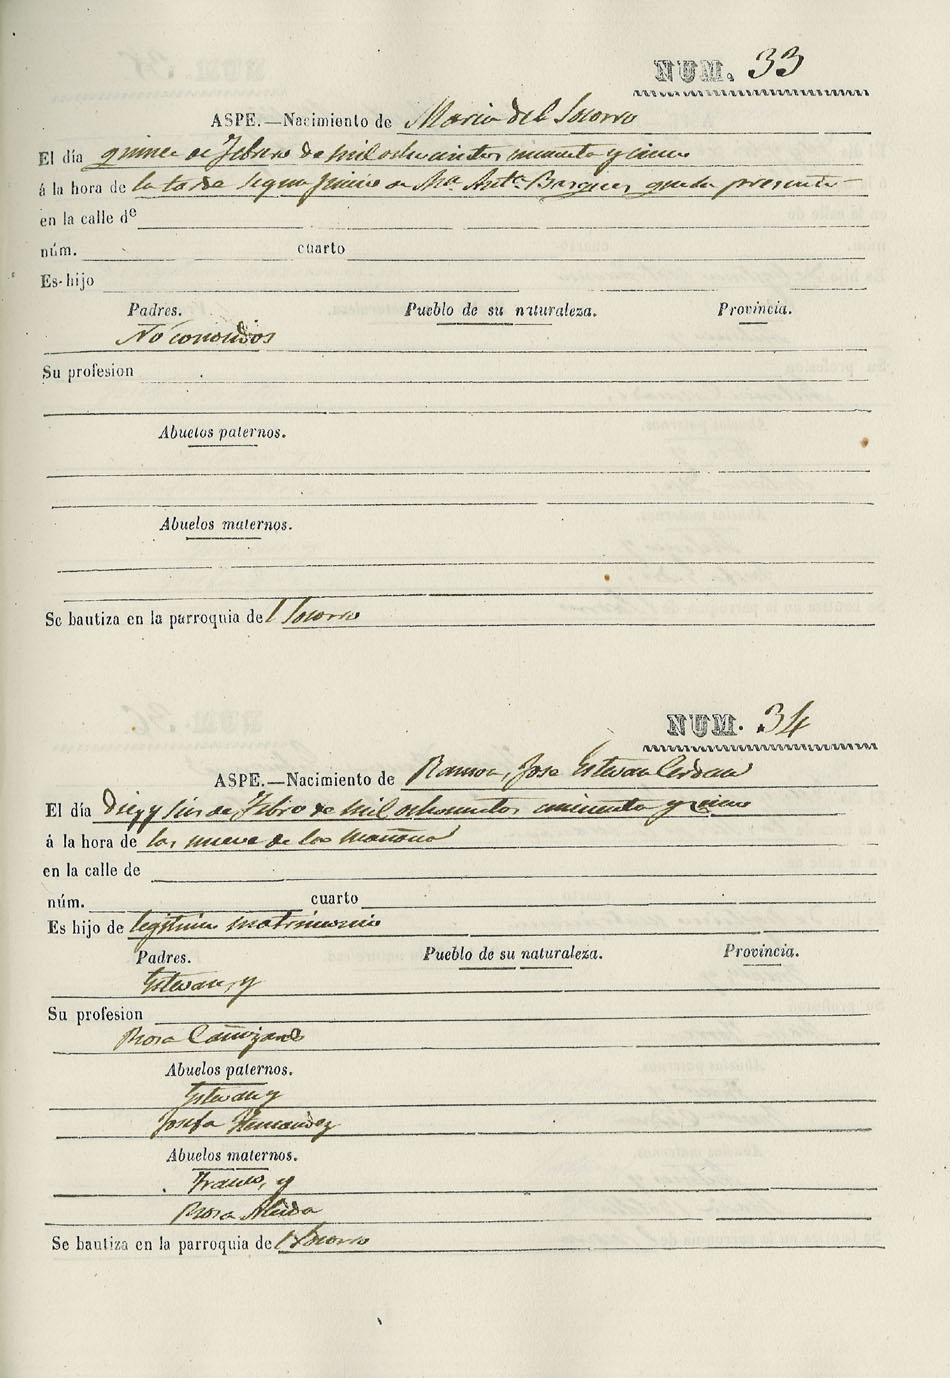 NUM. 33
ASPE.—Nacimiento de Maria del Socorro
El día quince de Febrero de mil ochocientos cincuenta y cinco
á la hora de la tarde segun juicio de Ma. Anta. Bargues que la presenta
en la calle de
núm. cuarto
Es hijo
Padres. Pueblo de su naturaleza. Provincia.
No conocidos
Su profesion
Abuelos paternos.
Abuelos maternos.
Se bautiza en la parroquia del Socorro
NUM. 34
ASPE.—Nacimiento de Ramon, Jose Estevan Cerdan
El día diez y seis de Febro de mil ochocientos cincuenta y cinco
á la hora de las nueve de la mañana
en la calle de
núm. cuarto
Es hijo de legitimo matrimonio
Padres. Pueblo de su naturaleza. Provincia.
Estevan, y
Su profesion
Rosa Cañizares
Abuelos paternos.
Estevan y
Josefa Hernandez
Abuelos maternos.
Franco, y
Rosa
Se bautiza en la parroquia del Socorro